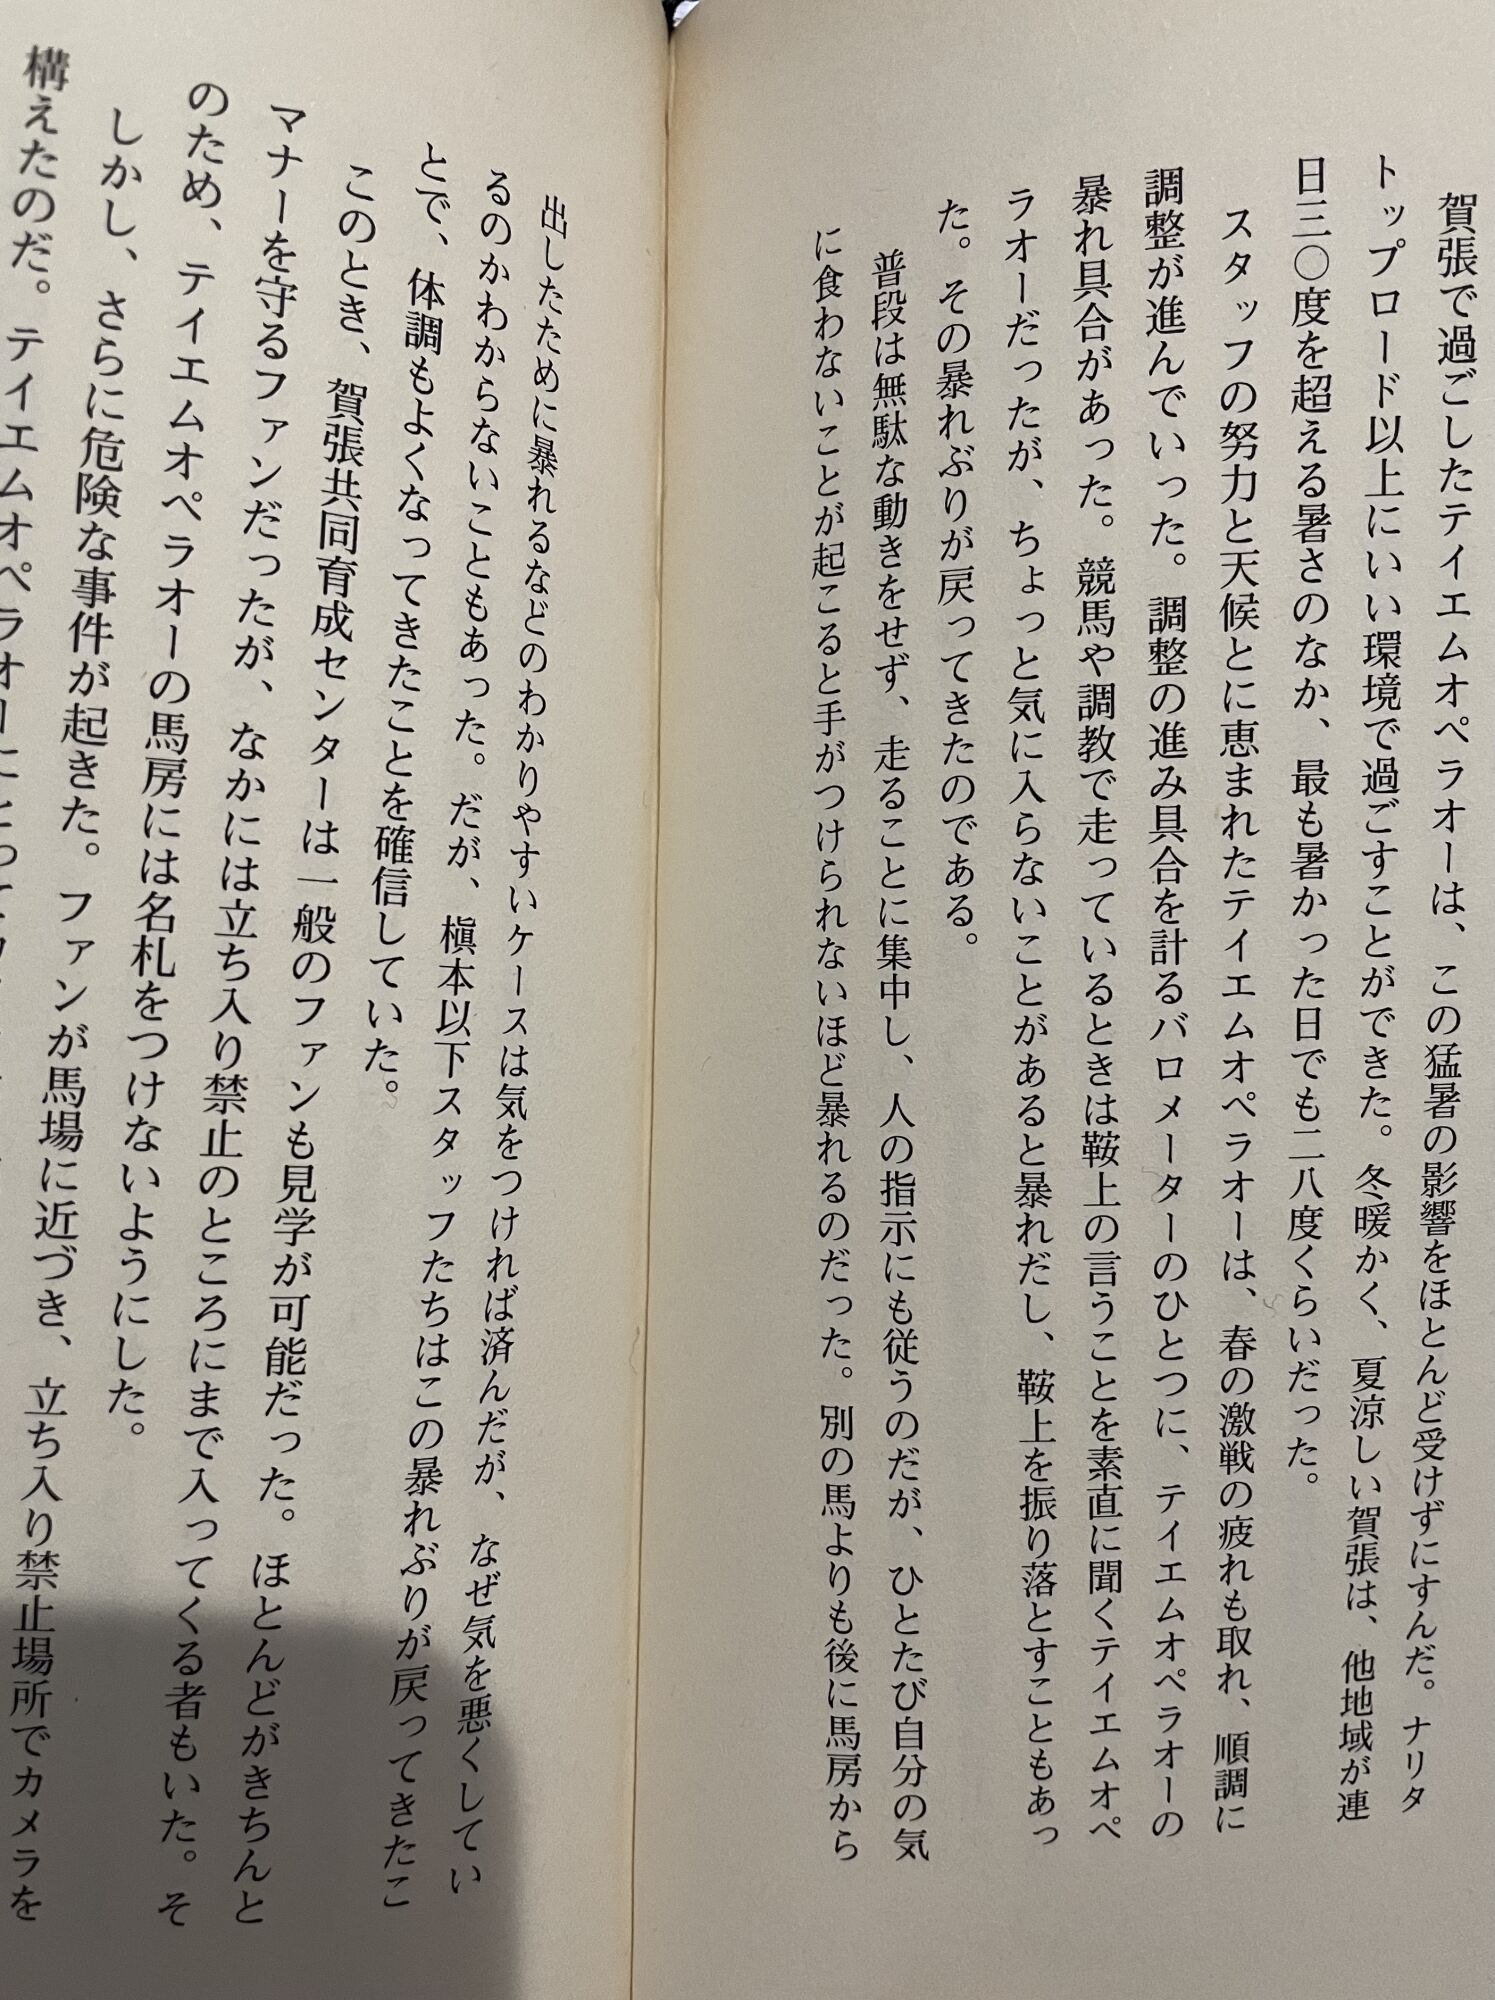 賀張で過ごしたテイエムオペラオーは、この猛暑の影響をほとんど受けずにすんだ。ナリタ
トップロード以上にいい環境で過ごすことができた。冬暖かく、夏涼しい賀張は、他地域が連
日三〇度を超える暑さのなか、最も暑かった日でも二八度くらいだった。
スタッフの努力と天候とに恵まれたテイエムオペラオーは、春の激戦の疲れも取れ、順調に
調整が進んでいった。調整の進み具合を計るバロメーターのひとつに、テイエムオペラオーの
暴れ具合があった。競馬や調教で走っているときは鞍上の言うことを素直に聞くテイエムオペ
ラオーだったが、ちょっと気に入らないことがあると暴れだし、鞍上を振り落とすこともあっ
た。その暴れぶりが戻ってきたのである。
普段は無駄な動きをせず、走ることに集中し、人の指示にも従うのだが、ひとたび自分の気
に食わないことが起こると手がつけられないほど暴れるのだった。別の馬よりも後に馬房から
出したために暴れるなどのわかりやすいケースは気をつければ済んだが、なぜ気を悪くしてい
るのかわからないこともあった。だが、槇本以下スタッフたちはこの暴れぶりが戻ってきたこ
とで、体調もよくなってきたことを確信していた。
このとき、賀張共同育成センターは一般のファンも見学が可能だった。ほとんどがきちんと
マナーを守るファンだったが、なかには立ち入り禁止のところにまで入ってくる者もいた。そ
のため、テイエムオペラオーの馬房には名札をつけないようにした。
しかし、さらに危険な事件が起きた。ファンが馬場に近づき、立ち入り禁止場所でカメラを
構えたのだ。テイエムオペラオーにとって